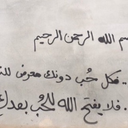 سم الله الرحمن الرحيم
فكل حُب دونك معرض للـ
فلا يفتح الله للحُب بعدك